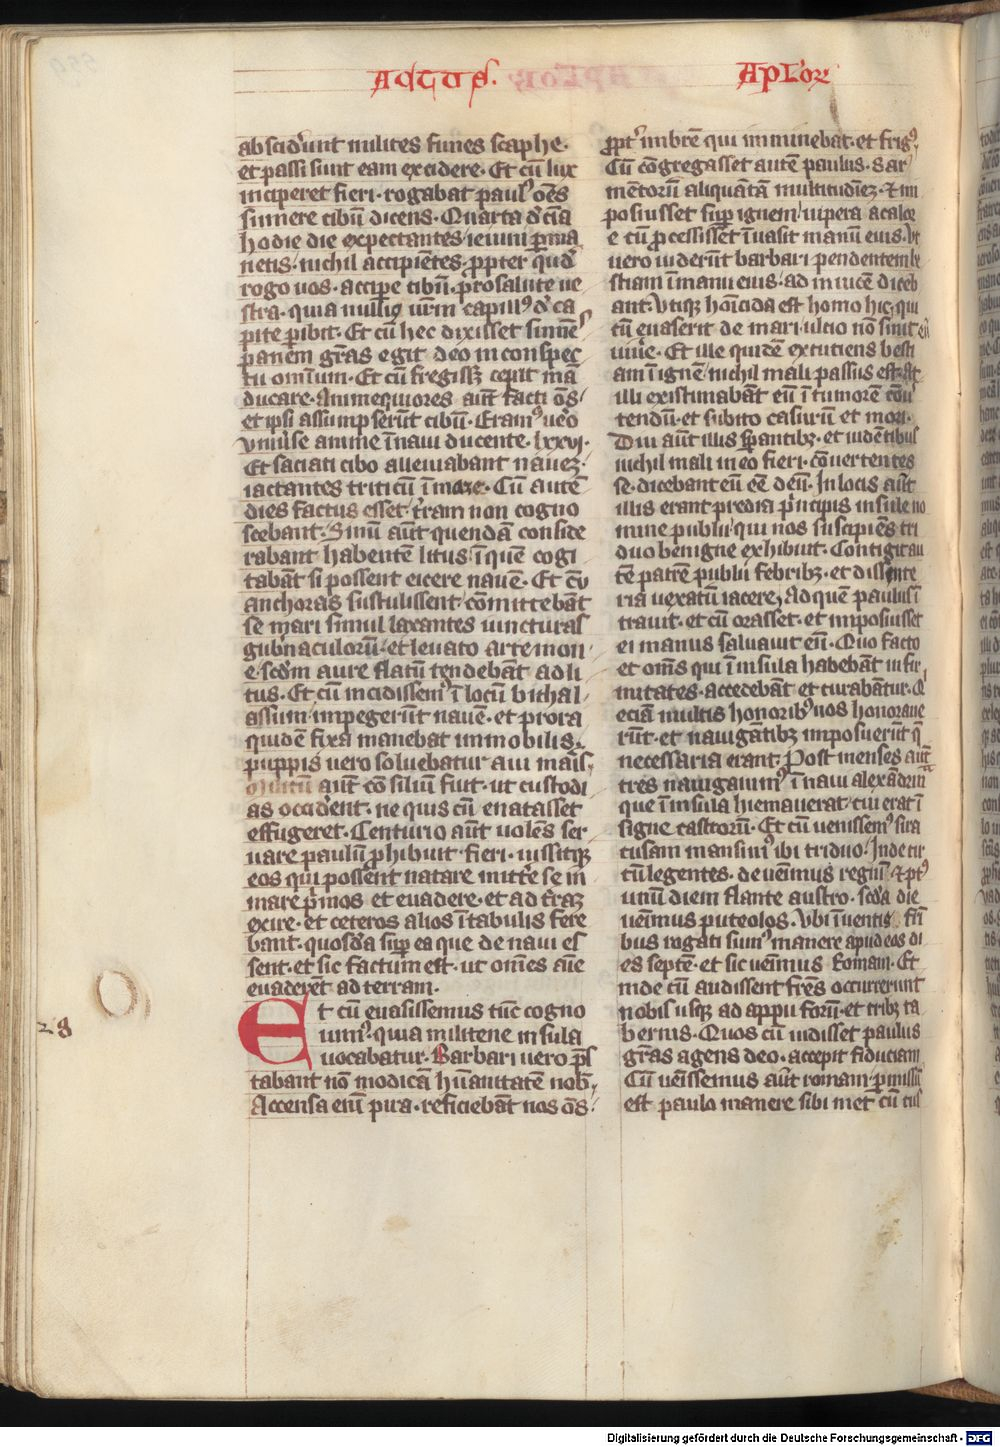 Actus. Aplor̄
absciderunt milites funes scaphe.
et passi sunt eam excidere. Et cū lux
inciperet fieri. rogabat paulꝰ oēs
sumere cibū dicens. Quarta dͨcia
hodie die expectantes ieiuni ꝑma
netis. nichil accipiētes. ꝓpter quod
rogo uos. accipe cibū. pro salute ue
stra. quia nulliꝰ urm̄ capillꝰ de ca
pite ꝑibit. Et cū hec dixisset sumēs
panem grās egit deo in conspec
tu omnium. Et cū fregissꝫ cepit mā
ducare. Animequiores aūt facti oēs
et ipsi assumpserūt cibū. Eramꝰ uͦo
vniuͥse anime ī naui ducente. lxxvj.
Et saciati cibo alleuiabant naueꝫ.
iactantes triticū ī mare. Cū autē
dies factus esset. tͥram non cogno
scebant. Sinū aūt quendā conside
rabant habentē litus. ī quē cogi
tabāt si possent eicere nauē. Et cū
anchoras sustulissent. cōmittebāt
se mari simul laxantes iuncturas
gubͥnaculorū. et leuato artemon
e. scdͫm aure flatū tendebāt ad li
tus. Et cū incidissemꝰ ī locū bithal
assum. impegerūt nauē. et prora
quidē fixa manebat immobilis.
puppis uero soluebatur a ui maris.
Militū aūt cōsilium fuit. ut custodi
as occidͥent. ne quis cū enatasset
effugeret. Centurio aūt uolēs ser
uare paulū ꝓhibuit fieri. iussitqꝫ
eos qui possent natare mittͥe se in
mare pͥmos et euadere. et ad tͥraꝫ
exire. et ceteros alios ī tabulis fere
bant. quosdā suꝑ ea que de naui es
sent. et sic factum est. ut omēs aīe
euaderēt ad terram.
Et cū euasissemus tūc cogno
uimꝰ. quia militene insula
uocabatur. Barbari uero pͤs
tabant nō modicā hūanitatē nob̄.
Accensa enī pira. reficiebāt nos oēs.
28
ꝓptͥ imbrē qui imminebat. et frigꝰ.
Cū cōgregasset autē paulus. sar
mētorū aliquātā multitudīeꝫ. ⁊ im
posuisset suꝑ ignem. uipera a calor
e cū ꝓcessisset īuasit manū eius. Vt
uero uiderūt barbari pendentem be
stiam ī manu eius. ad inuicē diceb
ant. Vtiqꝫ hoīcida est homo hic. qui
cū euaserit de mari. ulcio nō sinit eū
uiuͥe. Et ille quidē excutiens besti
am ī ignē. nichil mali passus est. At
illi existimabāt eū ī tumorē cōu
tendū. et subito casurū et mori.
Diu aūt illis sꝑantibꝫ. et uidētibus
nichil mali in eo fieri. cōuertentes
se. dicebant eū eē deū. In locis aūt
illis erant predia pͥncipis insule no
mine publii. qui nos suscipiēs tri
duo benigne exhibuit. Contigit au
tē patrē publii febribꝫ. et dissinte
ria uexatū iacere. Ad quē paulus ī
trauit. et cū orasset. et imposuisset
ei manus saluauit eū. Quo facto
et omēs qui ī insula habebāt infir
mitates. accedebāt et curabātur. Q̄
eciā multis honoribꝰ nos honoraue
rūt. et nauigātibꝫ imposuerūt q̄
necessaria erant. Post menses aūt
tres nauigauimꝰ ī naui alexādrina
que ī insula hiemauerat. cui erat ī
signe castorū. Et cū uenissemꝰ sira
cusam mansimꝰ ibi triduo. Inde cir
cūlegentes. deuēimus regiū. ⁊ pͭꝰ
unū diem flante austro. scdͣa die
uēimus puteolos. Vbi īuentis frī
bus rogati sumꝰ manere apud eos di
es septē. et sic uēimus Romam. Et
inde cū audissent frēs occurrerunt
nobis usqꝫ ad appii forū. et tribꝫ ta
bernis. Quos cū uidisset paulus
grās agens deo. accepit fiduciam.
Cū uēissemus aūt romam. ꝑmissū
est paulo manere sibi met cū cus
Digitalisierung gefördert durch die Deutsche Forschungsgemeinschaft - DFG